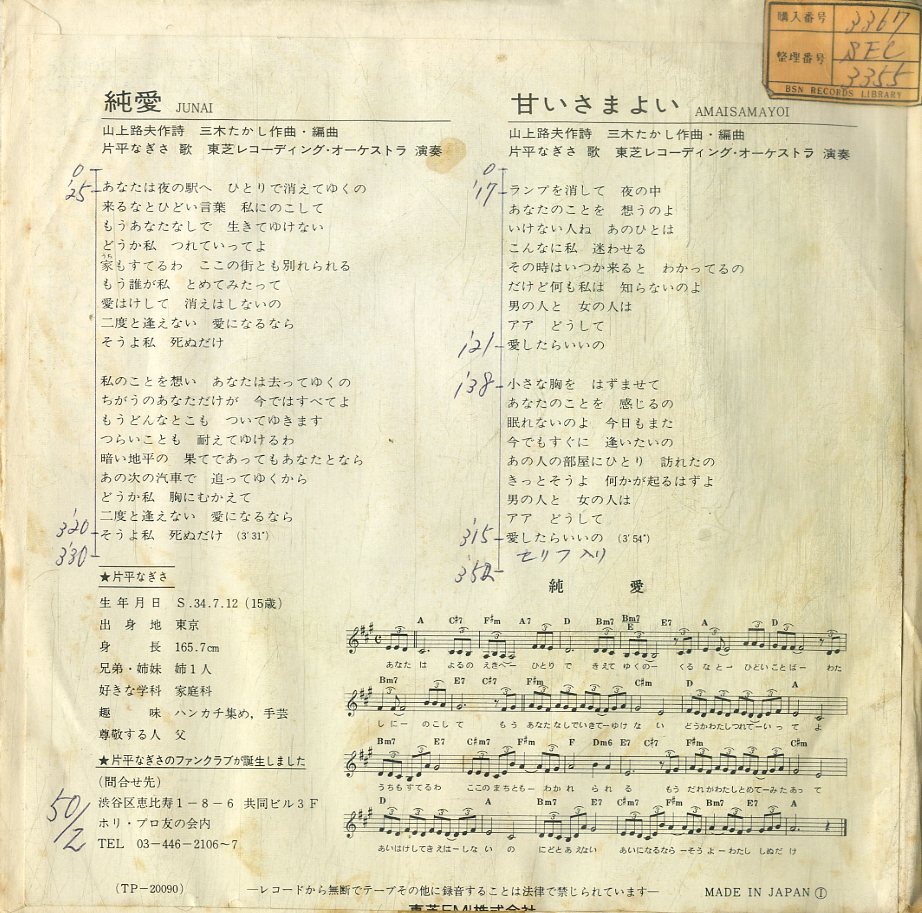 購入番号 3367
整理番号 SEC
3355
BSN RECORDS LIBRARY
純愛 JUNAI
山上路夫作詩 三木たかし作曲・編曲
片平なぎさ 歌 東芝レコーディング・オーケストラ 演奏
0
'25
あなたは夜の駅へ ひとりで消えてゆくの
来るなとひどい言葉 私にのこして
もうあなたなしで 生きてゆけない
どうか私 つれていってよ
うち
家もすてるわ ここの街とも別れられる
もう誰が私 とめてみたって
愛はけして 消えはしないの
二度と逢えない 愛になるなら
そうよ私 死ぬだけ
私のことを想い あなたは去ってゆくの
ちがうのあなただけが 今ではすべてよ
もうどんなとこも ついてゆきます
つらいことも 耐えてゆけるわ
暗い地平の 果てであってもあなたとなら
あの次の汽車で 追ってゆくから
どうか私 胸にむかえて
二度と逢えない 愛になるなら
3'20
そうよ私 死ぬだけ (3'31")
3'30
甘いさまよい AMAISAMAYOI
山上路夫作詩 三木たかし作曲・編曲
片平なぎさ 歌 東芝レコーディング・オーケストラ 演奏
0
'17
ランプを消して 夜の中
あなたのことを 想うのよ
いけない人ね あのひとは
こんなに私 迷わせる
その時はいつか来ると わかってるの
だけど何も私は 知らないのよ
男の人と 女の人は
アア どうして
1'21
愛したらいいの
1'38
小さな胸を はずませて
あなたのことを 感じるの
眠れないのよ 今日もまた
今でもすぐに 逢いたいの
あの人の部屋にひとり 訪れたの
きっとそうよ 何かが起るはずよ
男の人と 女の人は
アア どうして
3'15
愛したらいいの (3'54")
セリフ入り
3'52
★片平なぎさ
生年月日 S.34.7.12 (15歳)
出身地 東京
身長 165.7cm
兄弟・姉妹 姉1人
好きな学科 家庭科
趣味 ハンカチ集め, 手芸
尊敬する人 父
★片平なぎさのファンクラブが誕生しました
(問合せ先)
渋谷区恵比寿1-8-6 共同ビル3F
ホリ・プロ友の会内
TEL 03-446-2106~7
50/2
純愛
A C♯7 F♯m A7 D Bm7 Bm7 E E7 A D
あなた は よるの えきへー ひとり で きえて ゆくのー くる な とー ひどい ことばー わた
Bm7 E7 C♯7 F♯m C♯m D A
しにー のこし て もう あなた なしで いきてーゆけ な い どうか わたし つれてーいって よ
Bm7 E7 C♯m7 F♯m F Dm6 E7 C♯7 F♯m C♯m
うちも すてるわ ここの まちともー わかれ られ る もう だれが わたし とめてーみた あって
D A Bm7 E7 C♯7 F♯m Bm7 E7 A
あいは けして きえ はーしな い の にどと あえない あいに なるなら ーそう よーわたし しぬだ け
(TP-20090)
―レコードから無断でテープその他に録音することは法律で禁じられています―
MADE IN JAPAN Ⓘ
東芝EMI株式会社